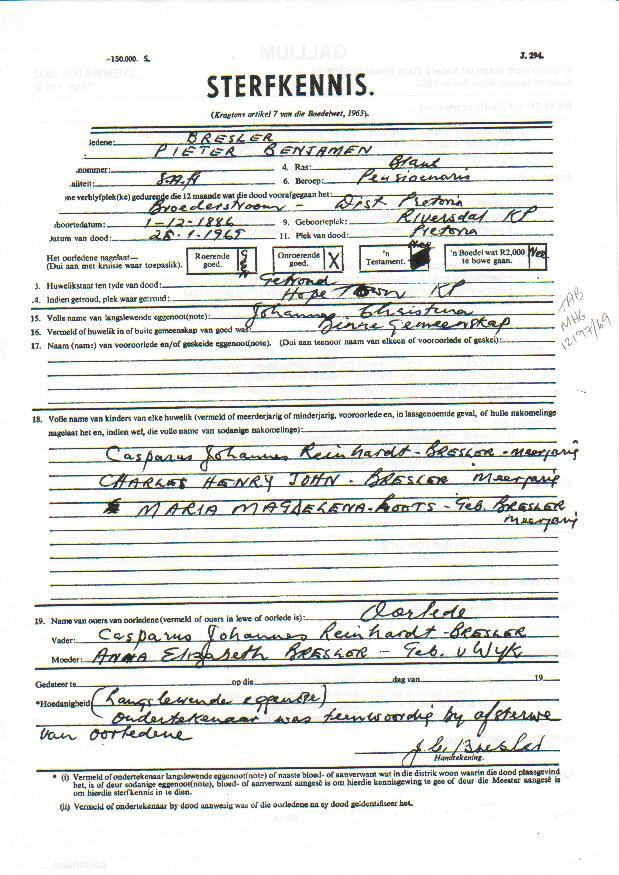 -150.000. S.
J. 294.
STERFKENNIS.
(Kragtens artikel 7 van die Boedelwet, 1965).
ledene: BRESLER
: PIETER BENJAMEN
nommer: 4. Ras: Blank
aliteit: S.A.R 6. Beroep: Pensioenaris
ne verblyfplek(ke) gedurende die 12 maande wat die dood voorafgegaan het:
Broederstroom - Dist Pretoria
boortedatum: 1-12-1886 9. Geboorteplek: Riversdal KP
Datum van dood: 28-1-1969 11. Plek van dood: Pretoria
Het oorledene nagelaat—
(Dui aan met kruisie waar toepaslik).
Roerende goed. Geen
Onroerende goed. X
'n Testament. Nee
'n Boedel wat R2,000 te bowe gaan. Nee
3. Huwelikstaat ten tyde van dood: Getroud
.4. Indien getroud, plek waar getroud: Hope Town KP
15. Volle name van langslewende eggenoot(note): Johanna Christina
16. Vermeld of huwelik in of buite gemeenskap van goed was: Binne Gemeenskap
17. Naam (name:) van vooroorlede en/of geskeide eggenoot(note). (Dui aan teenoor naam van elkeen of vooroorlede of geskei):
TAB
MHG
12197/69
18. Volle name van kinders van elke huwelik (vermeld of meerderjarig of minderjarig, vooroorlede en, in laasgenoemde geval, of hulle nakomelinge
nagelaat het en, indien wel, die volle name van sodanige nakomelinge):
Casparus Johannes Reinhardt - BRESLER - meerjarig
CHARLES HENRY JOHN - BRESLER meerjarig
MARIA MAGDELENA - ROOTS - Geb. BRESLER
meerjarig
19. Name van ouers van oorledene (vermeld of ouers in lewe of oorlede is): Oorlede
Vader: Casparus Johannes Reinhardt - BRESLER
Moeder: ANNA Elizabeth BRESLER - Geb. v Wyk
Gedateer te op die dag van 19
*Hoedanigheid (Langslewende eggenote)
Ondertekenaar was teenwoordig by afsterwe
van oorledene
J.C. Bresler
Handtekening.
* (i) Vermeld of ondertekenaar langslewende eggenoot(note) of naaste bloed- of aanverwant wat in die distrik woon waarin die dood plaasgevind
het, is of deur sodanige eggenoot(note), bloed- of aanverwant aangesê is om hierdie kennisgewing te gee of deur die Meester aangesê is
om hierdie sterfkennis in te dien.
(ii) Vermeld of ondertekenaar by dood aanwesig was of die oorledene na sy dood geïdentifiseer het.